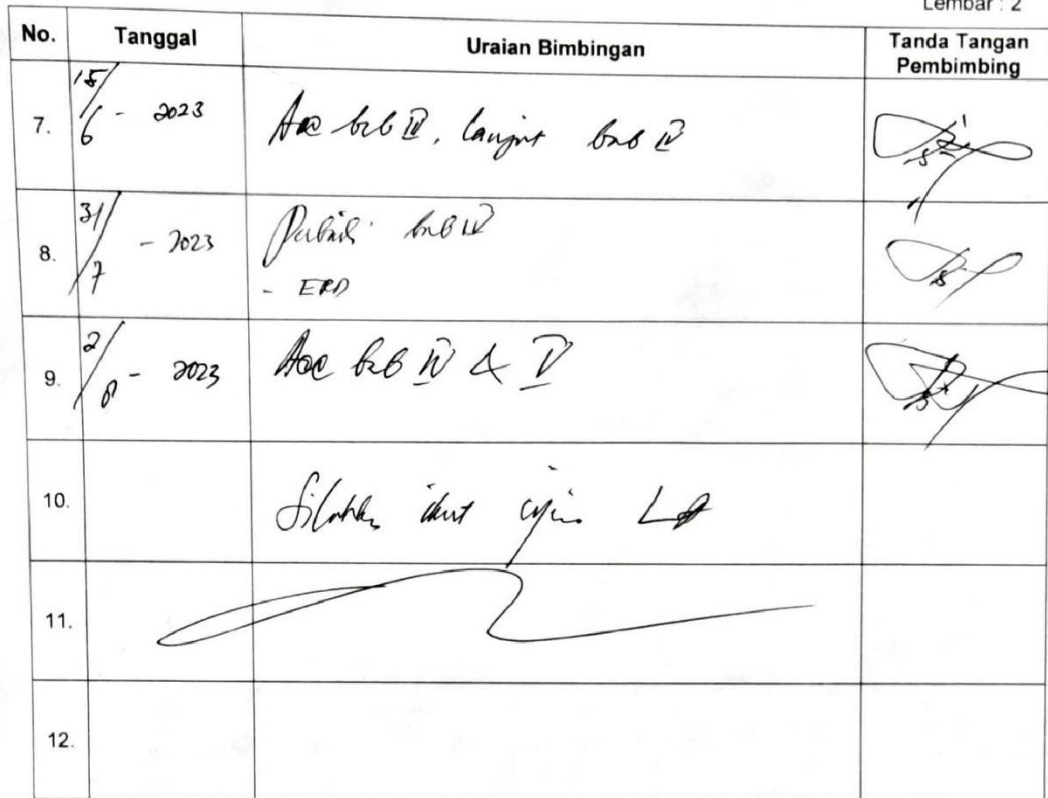 Lembar : 2
No. Tanggal Uraian Bimbingan Tanda Tangan Pembimbing
7. 15/6 - 2023 Acc bab III, lanjut bab IV
8. 31/7 - 2023 Perbaiki bab IV
- ERD
9. 2/8 - 2023 Acc bab IV & V
10. Silahkan ikut ujian LA
11.
12.